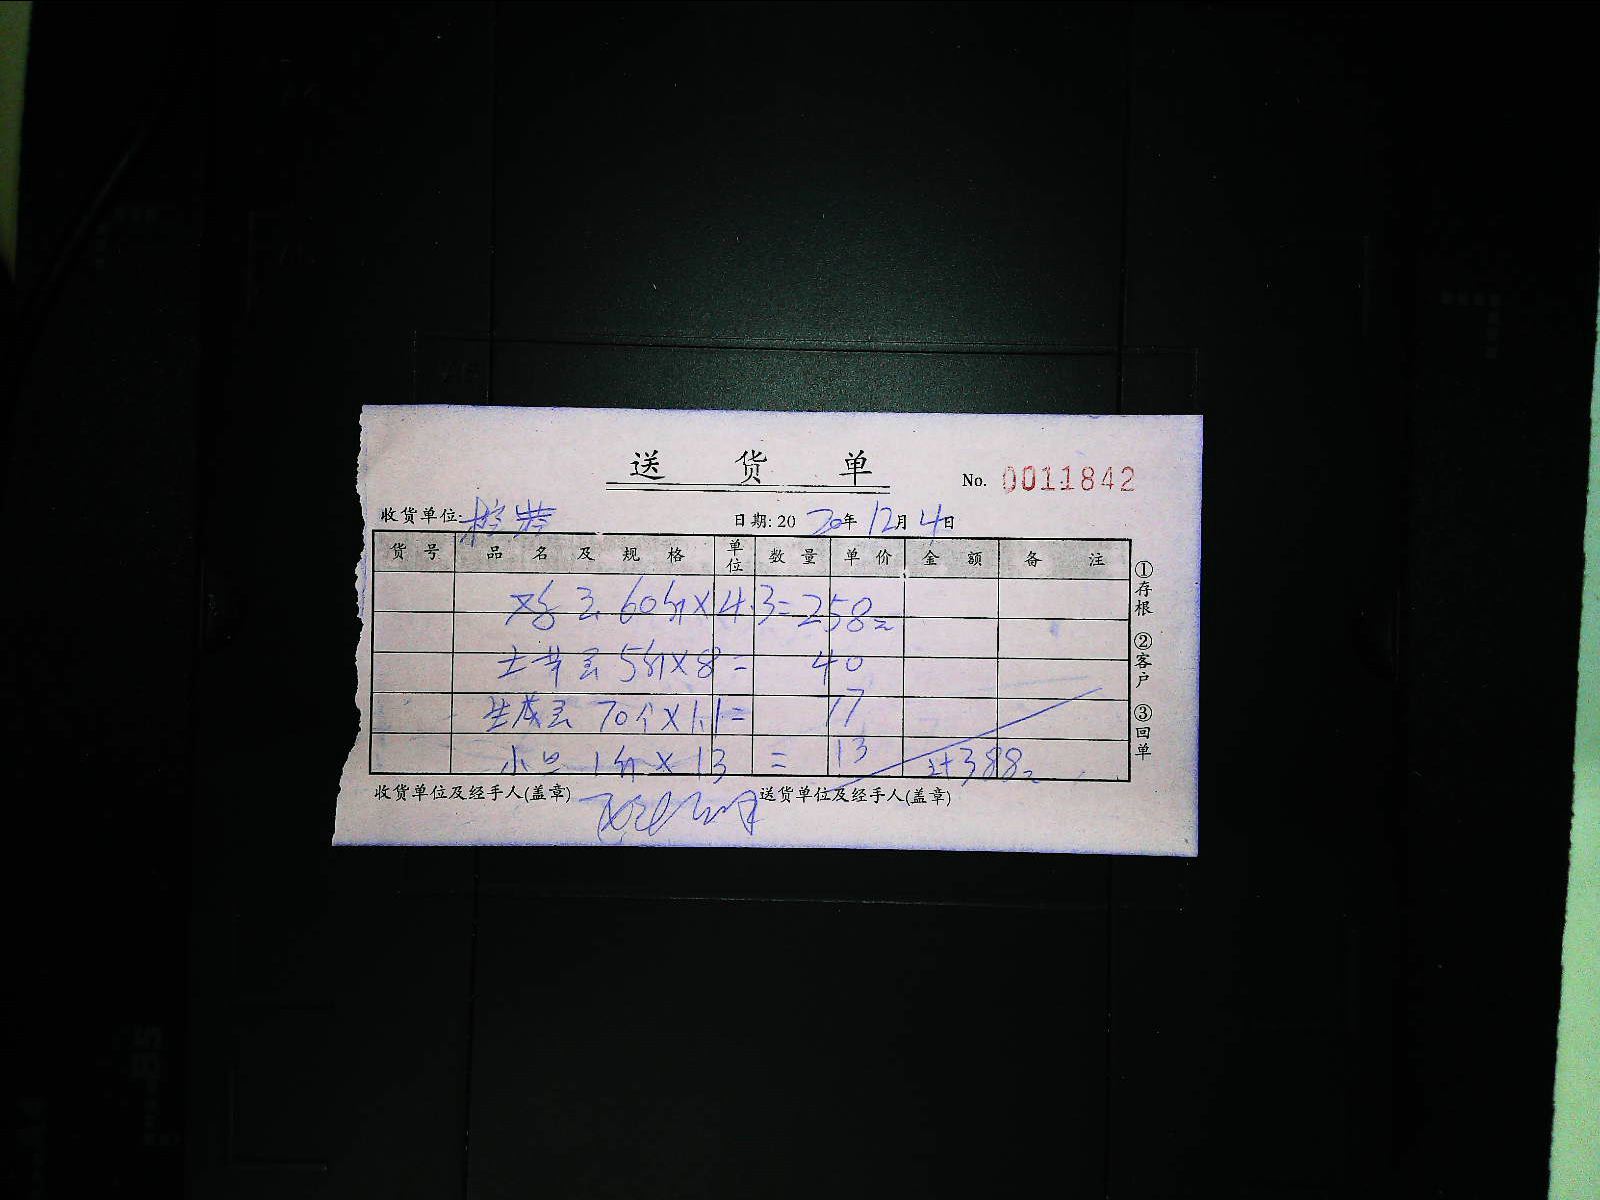 送货单
No. 0011842
收货单位:
日期: 20 20年 12月 4日
货号 品名及规格 单位 数量 单价 金额 备注
鸡蛋 60斤×4.3=258元
土鸡蛋 5斤×8= 40
70个×1.1= 77
1斤×13 = 13 计388元
收货单位及经手人(盖章) 送货单位及经手人(盖章)
①存根 ②客户 ③回单